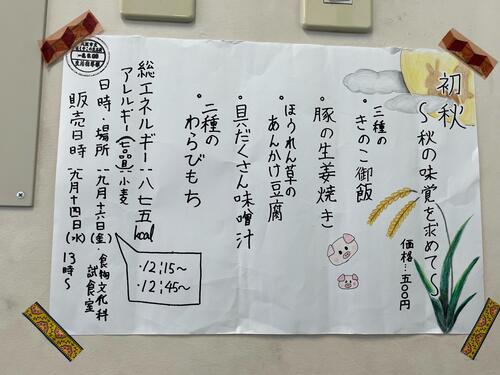 初秋
〜秋の味覚を求めて〜
価格…五〇〇円
・三種の
きのこ御飯
・豚の生姜焼き
・ほうれん草の
あんかけ豆腐
・具だくさん味噌汁
・二種の
わらびもち
総エネルギー…八七五kcal
アレルギー(七品目)小麦
日時・場所 九月十六日(金)・食物文化科
試食室
・12:15〜
・12:45〜
販売日時 九月十四日(水) 13時〜